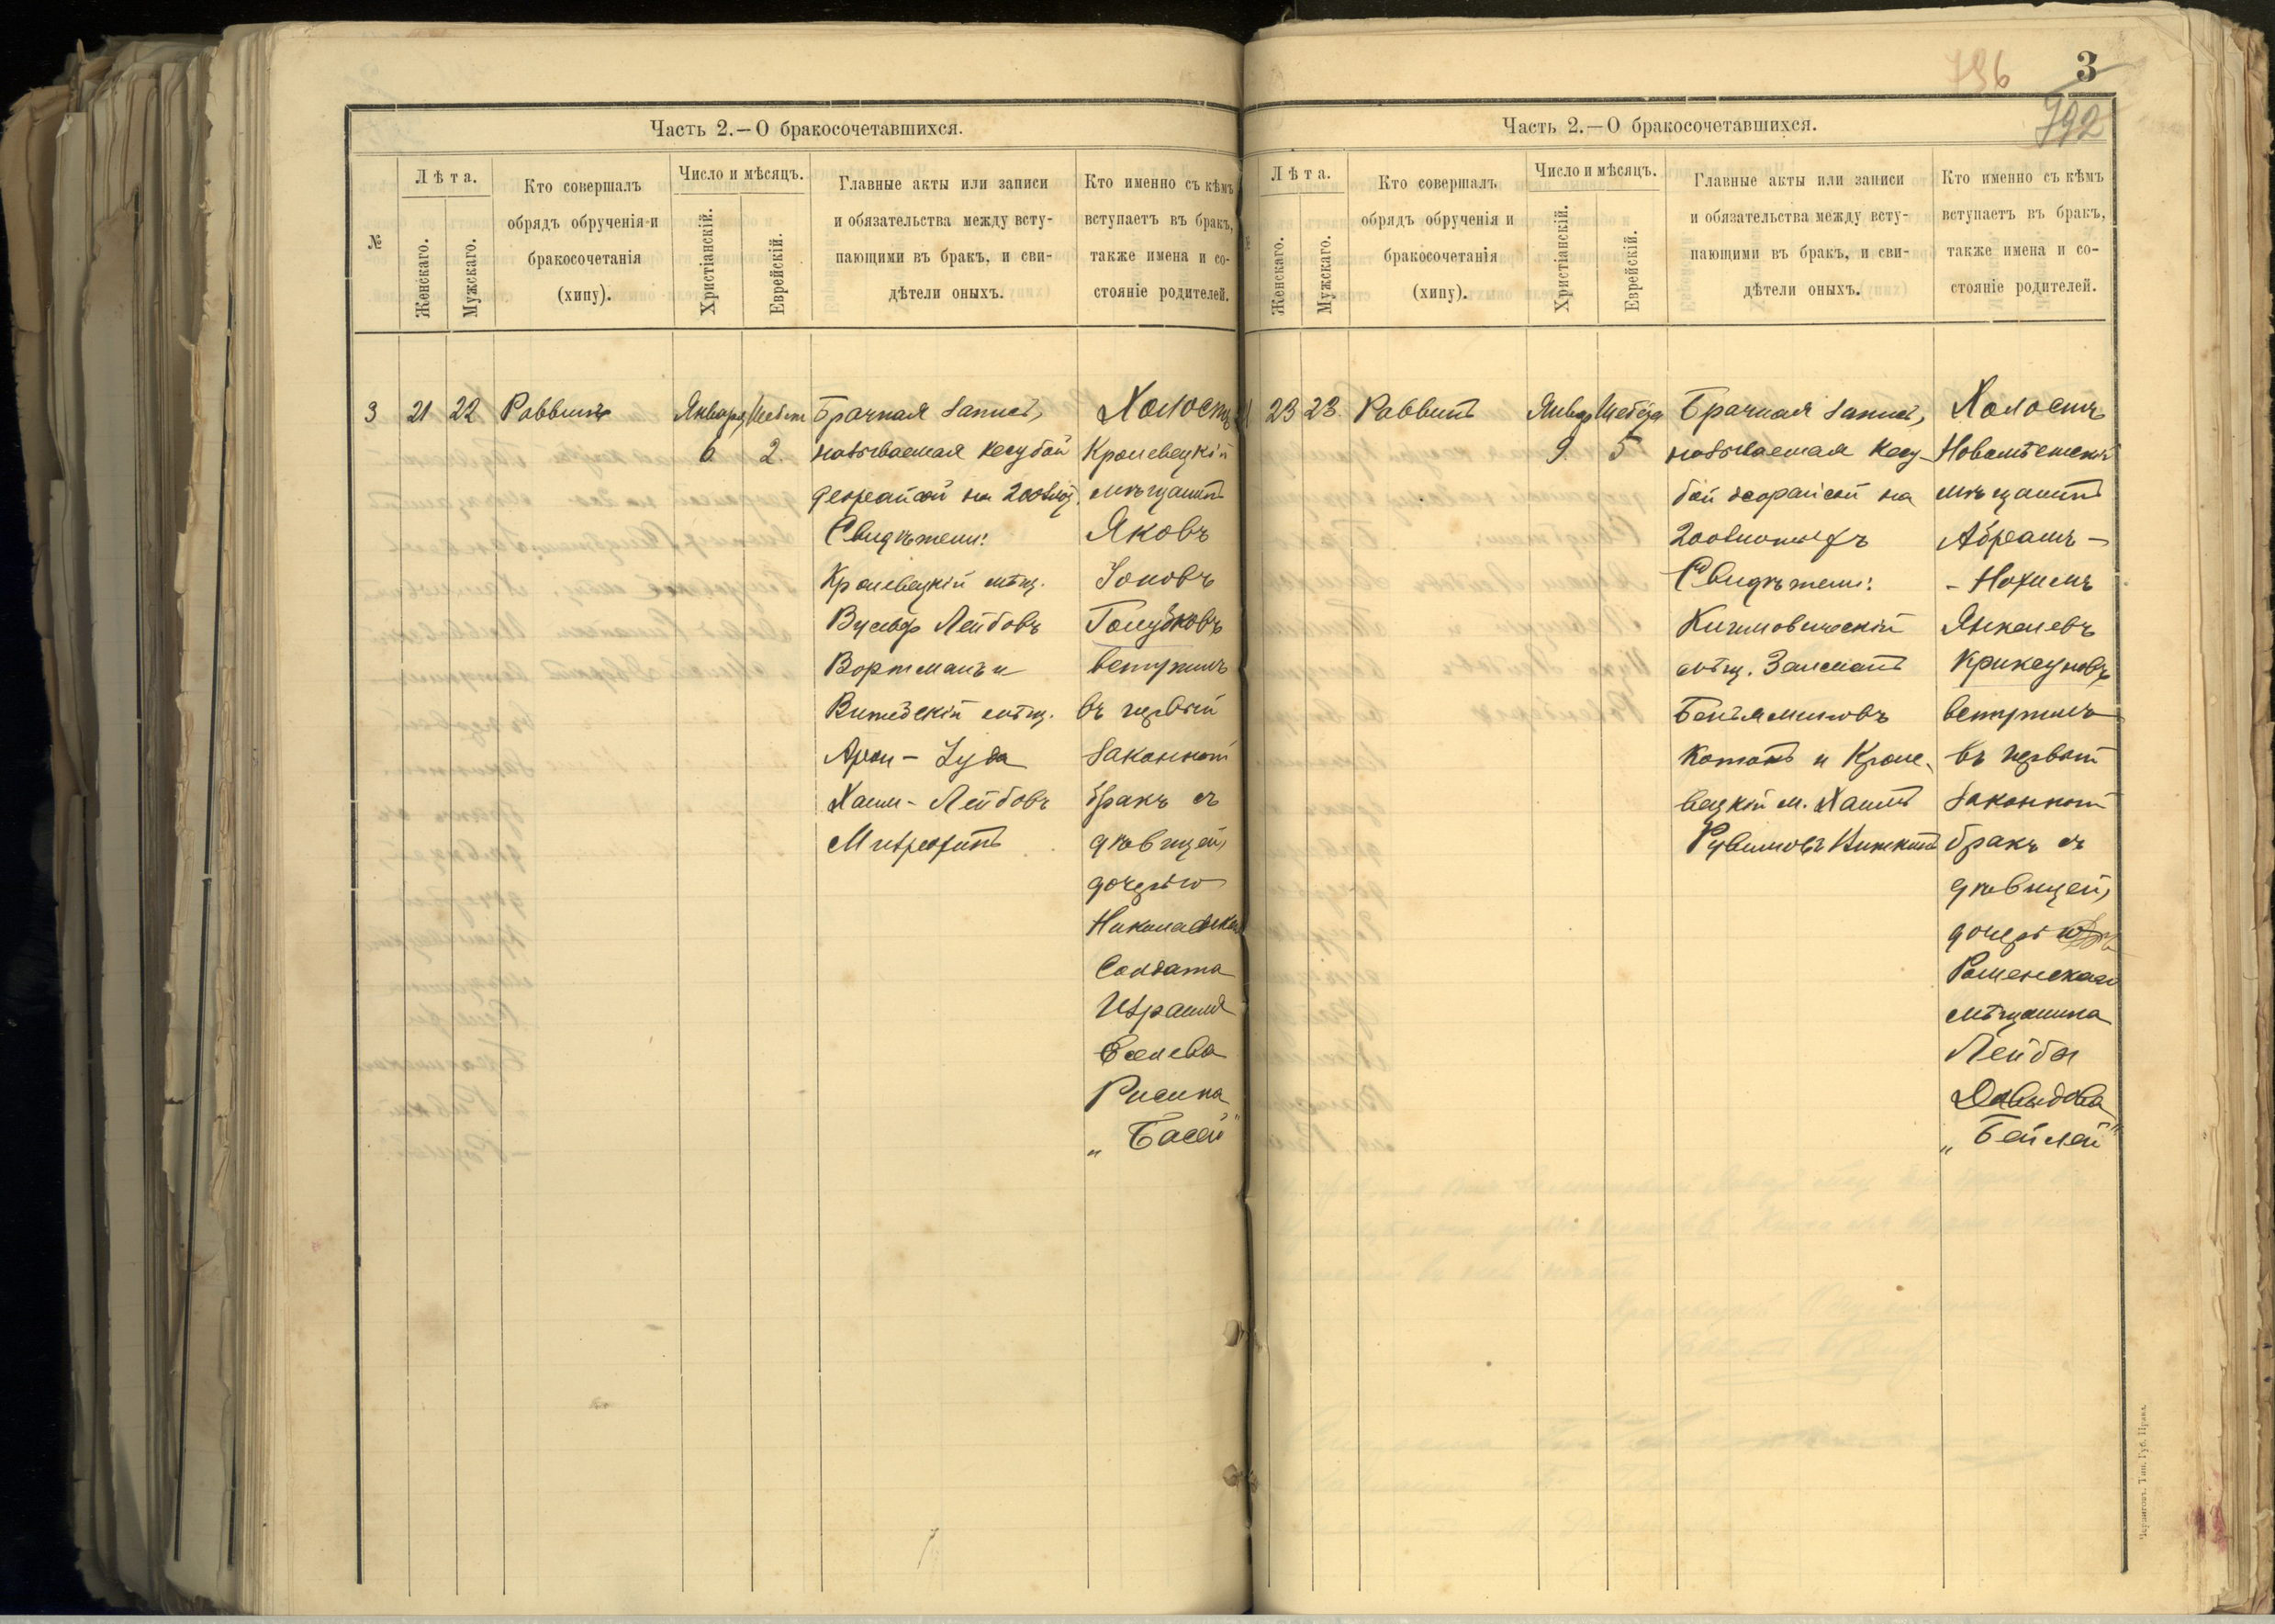 Часть 2.—О бракосочетавшихся.
№
Лѣта.
Женскаго.
Мужскаго.
Кто совершалъ
обрядъ обрученія и
бракосочетанія
(хипу).
Число и мѣсяцъ.
Христіанскій.
Еврейскій.
Главные акты или записи
и обязательства между всту-
пающими въ бракъ, и сви-
дѣтели оныхъ.
Кто именно съ кѣмъ
вступаетъ въ бракъ,
также имена и со-
стояніе родителей.
3
21
22
Раввинъ
Января
6
2.
Брачная запись,
называемая кесубой
на 200
Свидѣтели:
Кролевецкій мѣщ.
Вульфъ Лейбовъ
Вортманъ и
Витебскій мѣщ.
Арон-Іуда
Хаим-Лейбовъ
Холостъ
Кролевецкій
мѣщанинъ
Яковъ
Іоновъ
Голубковъ
вступилъ
въ первый
законный
бракъ съ
дѣвицей,
дочерью
Солдата
Израиля
Рисина
„Басей"
796
3
792
Часть 2.—О бракосочетавшихся.
Лѣта.
Женскаго.
Мужскаго.
Кто совершалъ
обрядъ обрученія и
бракосочетанія
(хипу).
Число и мѣсяцъ.
Христіанскій.
Еврейскій.
Главные акты или записи
и обязательства между всту-
пающими въ бракъ, и сви-
дѣтели оныхъ.
Кто именно съ кѣмъ
вступаетъ въ бракъ,
также имена и со-
стояніе родителей.
23
23
Раввинъ
Январ
9
5
Брачная запись,
называемая кесу-
бой деорайсой на
200 злотыхъ
Свидѣтели:
мѣщ. Залманъ
Беньяминовъ
и Кроле-
вецкій м. Хаимъ
Рувимовъ
Холостъ
мѣщанинъ
Абрамъ-
-Нохимъ
Янкелевъ
Криксуновъ
вступилъ
въ первый
законный
бракъ съ
дѣвицей,
дочерью
Роменскаго
мѣщанина
Лейбы
Давыдова
„Бейлей"
Черниговъ. Тип. Губ. Правл.